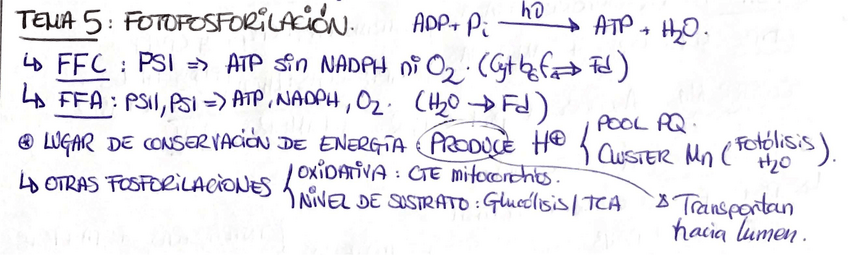 TEMA 5: FOTOFOSFORILACIÓN. ADP + Pi —hν→ ATP + H2O.
↳ FFC: PSI => ATP sin NADPH ni O2. (Cyt b6f ⇌ Fd)
↳ FFA: PSII, PSI => ATP, NADPH, O2. (H2O → Fd)
⊛ LUGAR DE CONSERVACIÓN DE ENERGÍA: PRODUCE H⊕ { POOL PQ.
CLUSTER Mn (Fotólisis H2O).
↳ OTRAS FOSFORILACIONES { OXIDATIVA: CTE mitocondrias.
NIVEL DE SUSTRATO: Glucólisis / TCA
Transportan
hacia lumen.